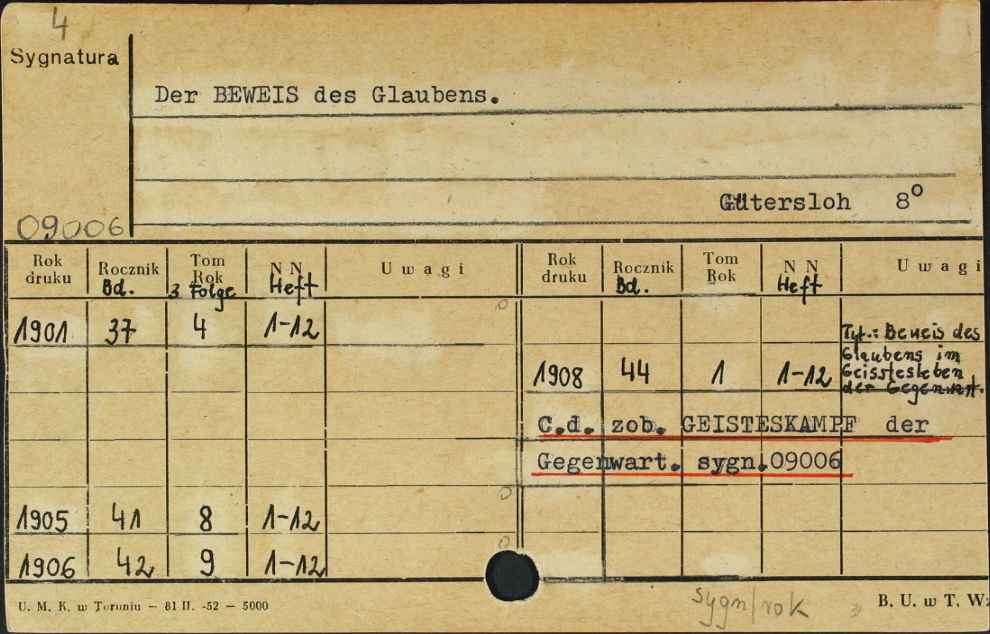 4
Sygnatura
Der BEWEIS des Glaubens.
Gütersloh 8°
09006
Rok druku Rocznik Bd. Tom Rok 3. Folge N N Heft Uwagi
1901 37 4 1-12
1905 41 8 1-12
1906 42 9 1-12
Rok druku Rocznik Bd. Tom Rok N N Heft Uwagi
Tyt.: Beweis des
Glaubens im
Geisstesleben
der Gegenwart.
1908 44 1 1-12
C.d. zob. GEISTESKAMPF der
Gegenwart. sygn.09006
U. M. K. w Toruniu — 81 II. -52 — 5000
sygn/rok
B. U. w T. Wz